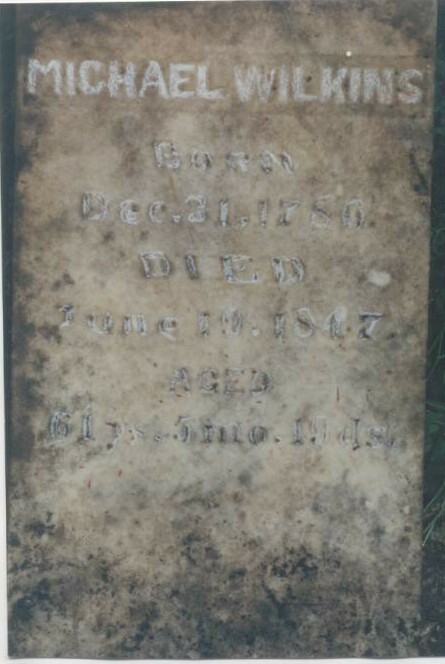 MICHAEL WILKINS
BORN
Dec. 31, 1786
DIED
June 19, 1847.
AGED
61 ys. 5 mo. 19 ds.